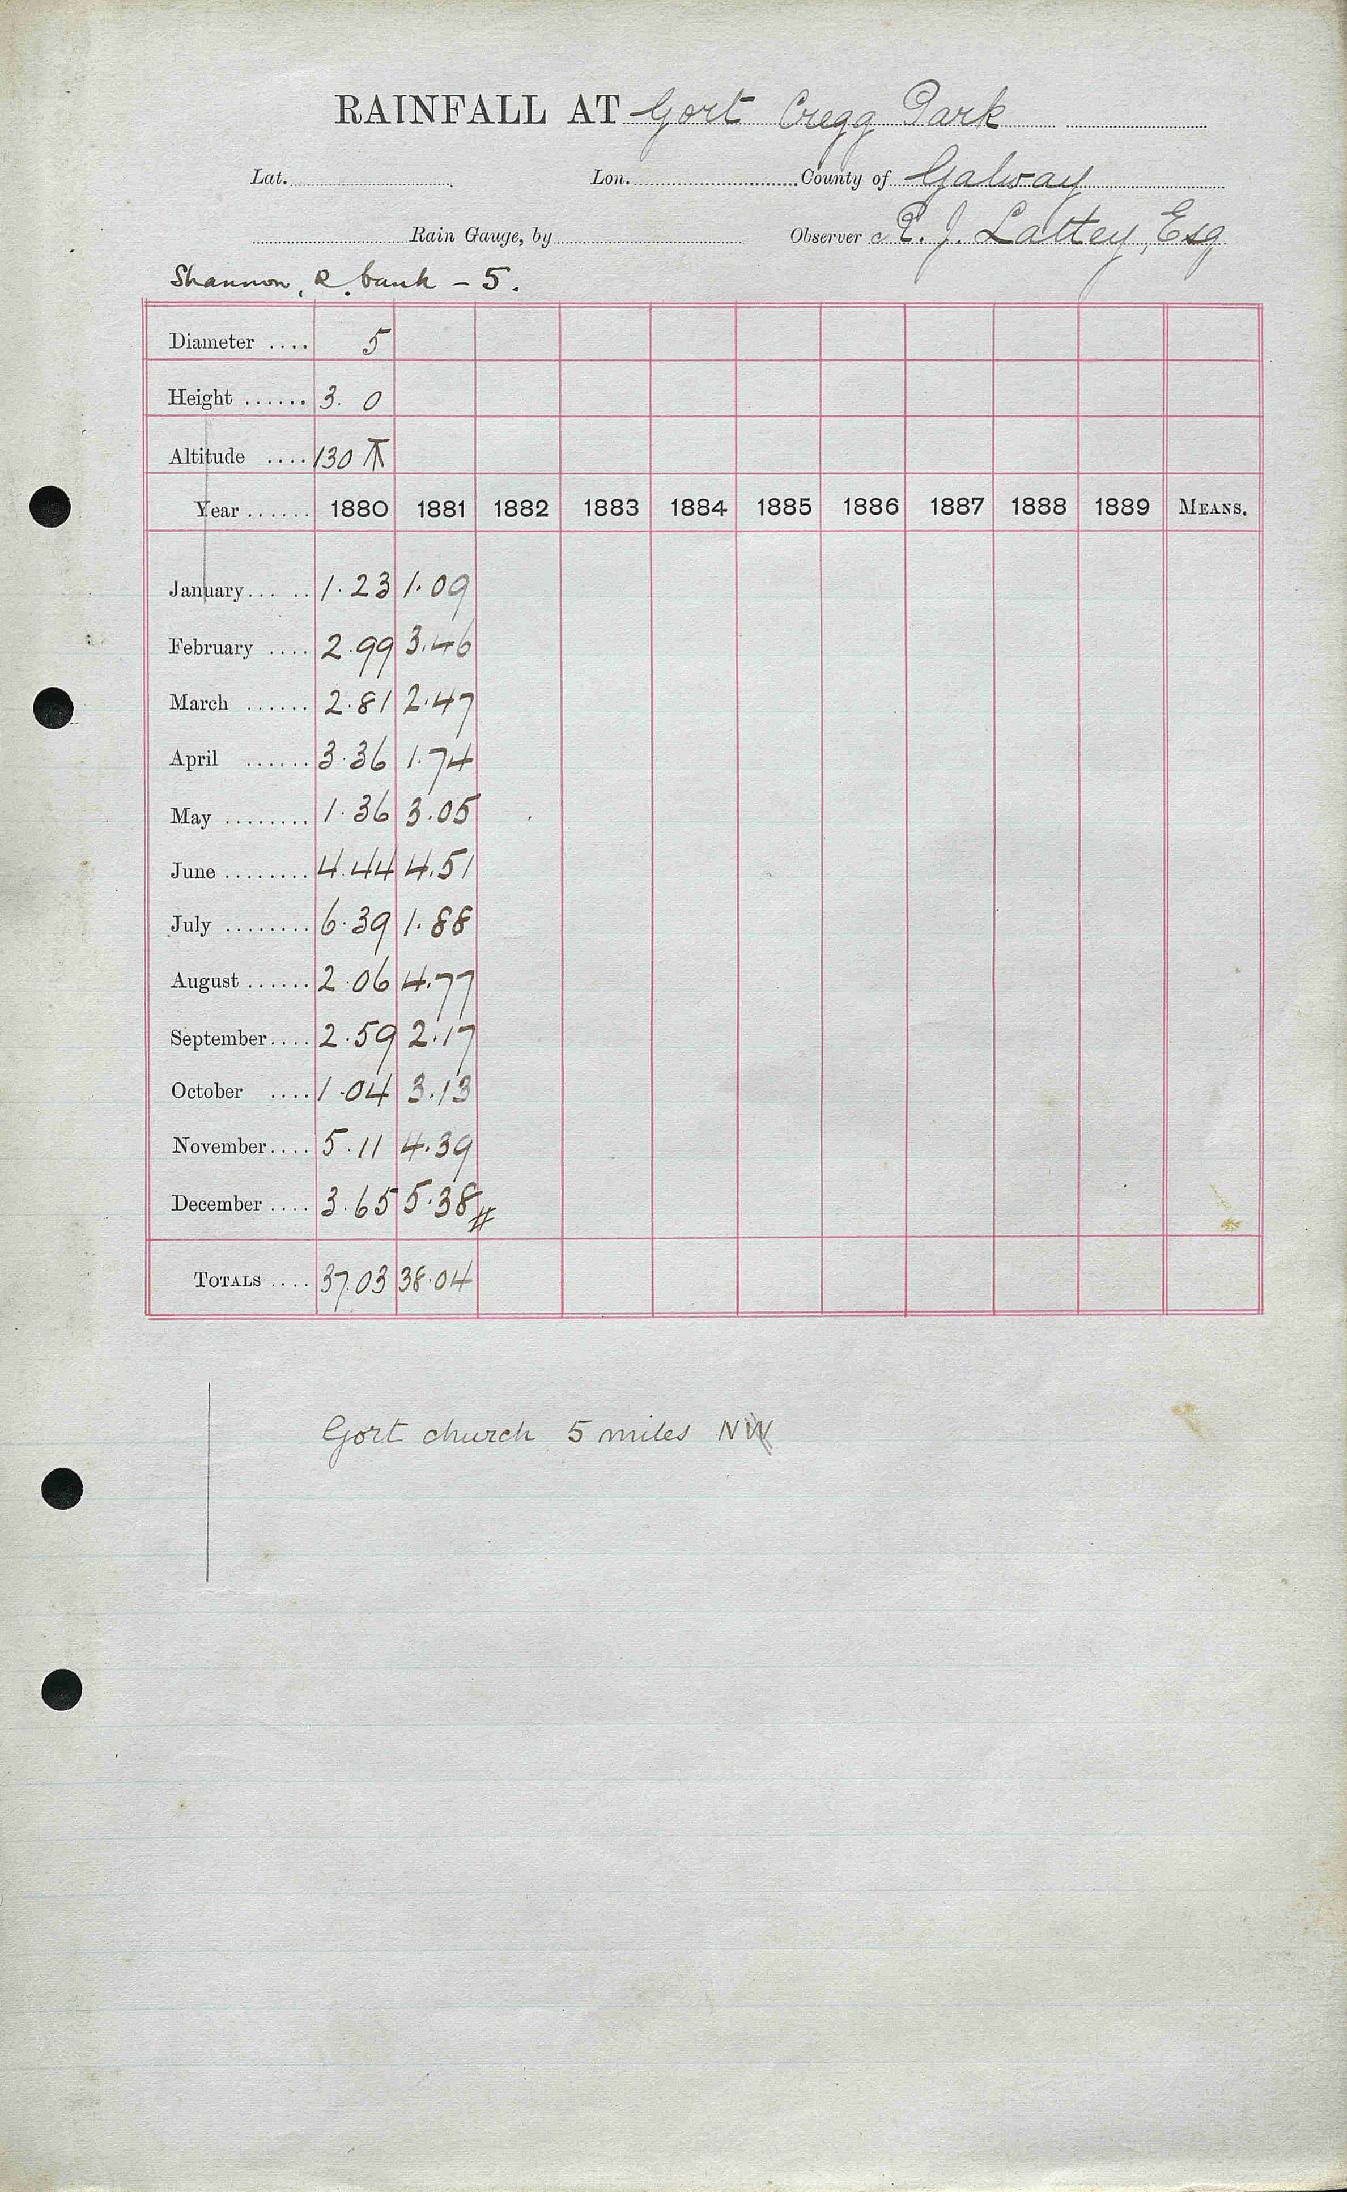 RAINFALL AT Gort Cregg Park
Lat. Lon. County of Galway
Rain Gauge, by Observer R. J. Lattey, Esq
Shannon, R. bank - 5.
Diameter .... 5
Height ...... 3. 0
Altitude .... 130
Year ...... 1880 1881 1882 1883 1884 1885 1886 1887 1888 1889 MEANS.
January ... .. 1.23 1.09
February .... 2.99 3.46
March ...... 2.81 2.47
April ...... 3.36 1.74
May ........ 1.36 3.05
June ........ 4.44 4.51
July ........ 6.39 1.88
August ...... 2.06 4.77
September.... 2.59 2.17
October .... 1.04 3.13
November.... 5.11 4.39
December .... 3.65 5.38 #
TOTALS .... 37.03 38.04
Gort church 5 miles NW